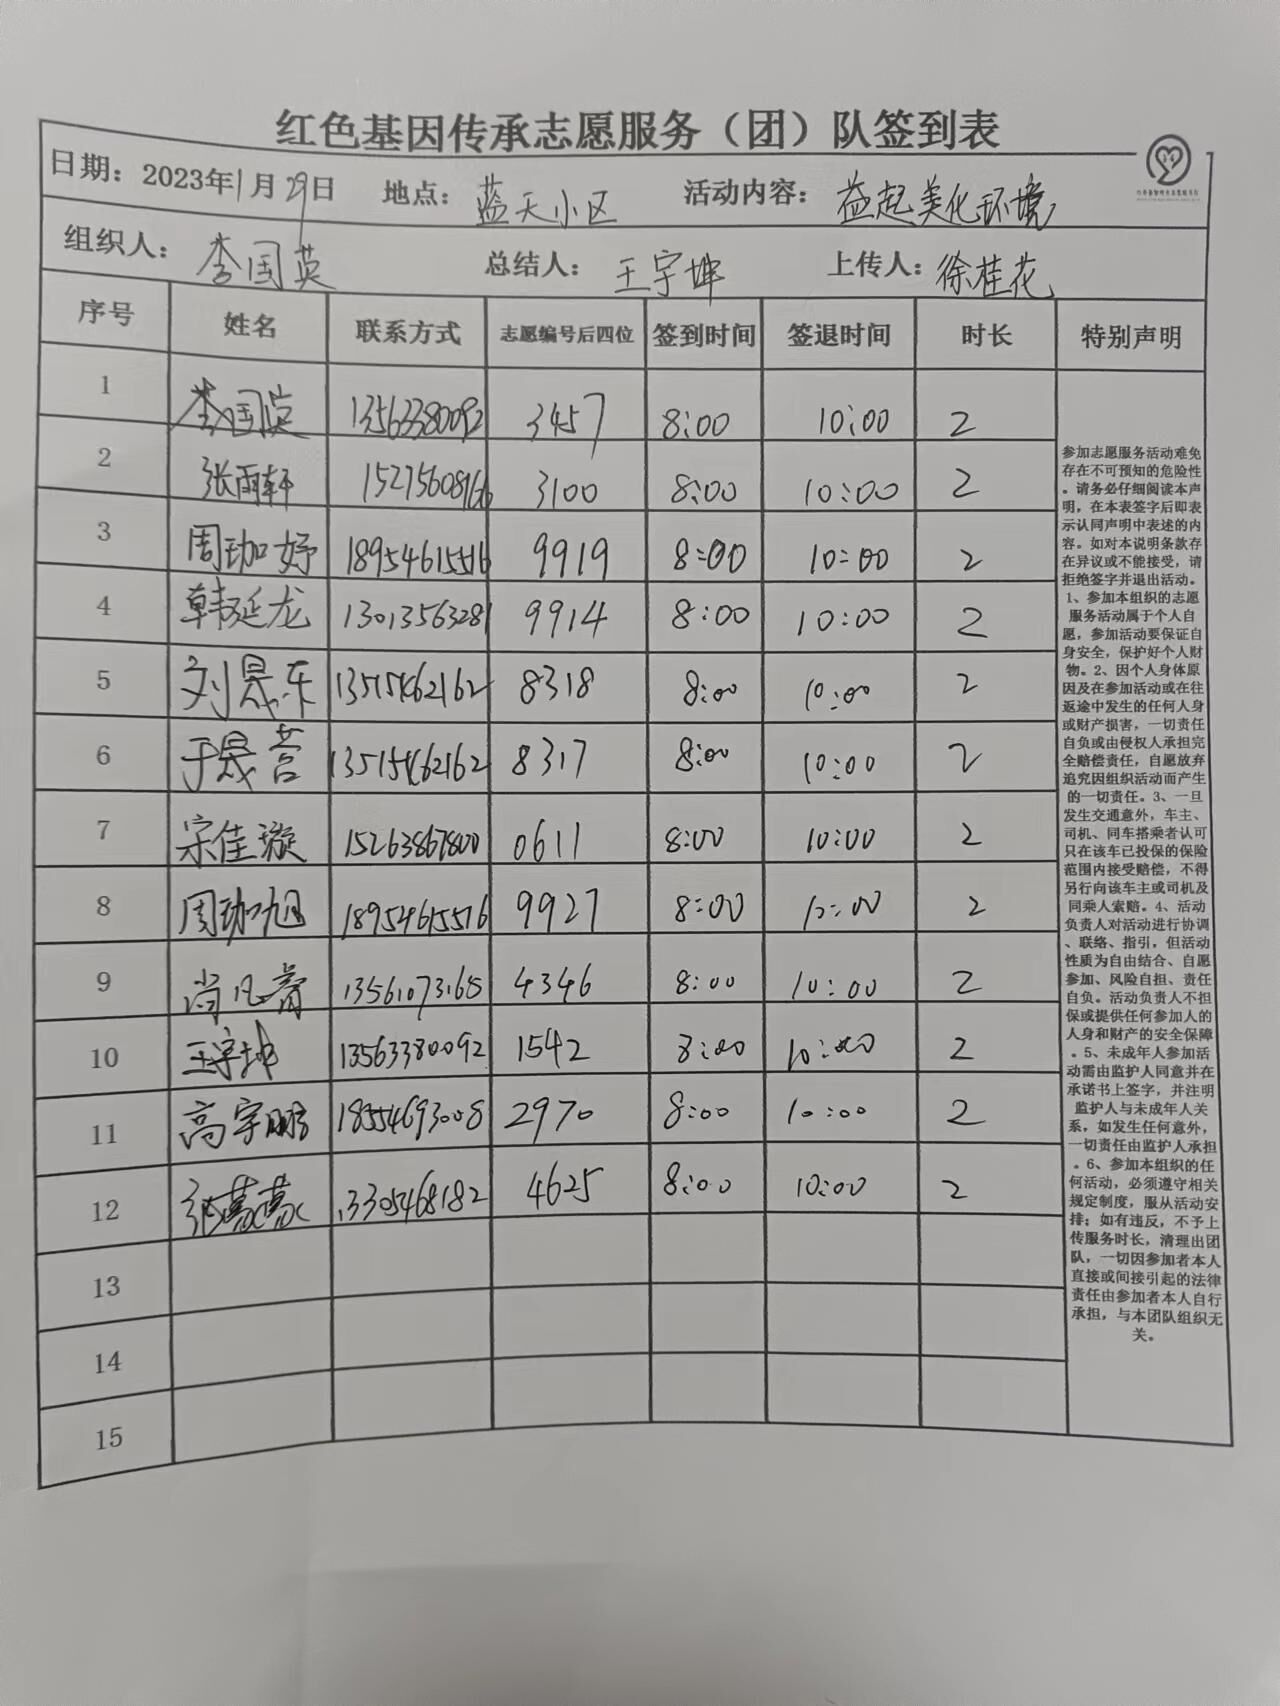 红色基因传承志愿服务（团）队签到表
日期：2023年1月29日 地点：蓝天小区 活动内容：益起美化环境
组织人：李国英 总结人：王宇坤 上传人：徐桂花
序号 姓名 联系方式 志愿编号后四位 签到时间 签退时间 时长 特别声明
1 李国英 13563380092 3457 8:00 10:00 2
2 张雨轩 3100 8:00 10:00 2
3 周珈妤 18954615516 9919 8:00 10:00 2
4 韩延龙 13013563281 9914 8:00 10:00 2
5 刘晟乐 13515462162 8318 8:00 10:00 2
6 于晟营 13515462162 8317 8:00 10:00 2
7 宋佳璇 15263867800 0611 8:00 10:00 2
8 周珈旭 18954615516 9927 8:00 10:00 2
9 尚凡 13561073165 4346 8:00 10:00 2
10 王宇坤 13563380092 1542 8:00 10:00 2
11 高宇鹏 18554693008 2970 8:00 10:00 2
12 张 13305468182 4625 8:00 10:00 2
13
14
15
参加志愿服务活动难免
存在不可预知的危险性
。请务必仔细阅读本声
明，在本表签字后即表
示认同声明中表述的内
容。如对本说明条款存
在异议或不能接受，请
拒绝签字并退出活动。
1、参加本组织的志愿
服务活动属于个人自
愿，参加活动要保证自
身安全，保护好个人财
物。2、因个人身体原
因及在参加活动或在往
返途中发生的任何人身
或财产损害，一切责任
自负或由侵权人承担完
全赔偿责任，自愿放弃
追究因组织活动而产生
的一切责任。3、一旦
发生交通意外，车主、
司机、同车搭乘者认可
只在该车已投保的保险
范围内接受赔偿，不得
另行向该车主或司机及
同乘人索赔。4、活动
负责人对活动进行协调
、联络、指引，但活动
性质为自由结合、自愿
参加、风险自担、责任
自负。活动负责人不担
保或提供任何参加人的
人身和财产的安全保障
。5、未成年人参加活
动需由监护人同意并在
承诺书上签字，并注明
监护人与未成年人关
系，如发生任何意外，
一切责任由监护人承担
。6、参加本组织的任
何活动，必须遵守相关
规定制度，服从活动安
排；如有违反，不予上
传服务时长，清理出团
队，一切因参加者本人
直接或间接引起的法律
责任由参加者本人自行
承担，与本团队组织无
关。